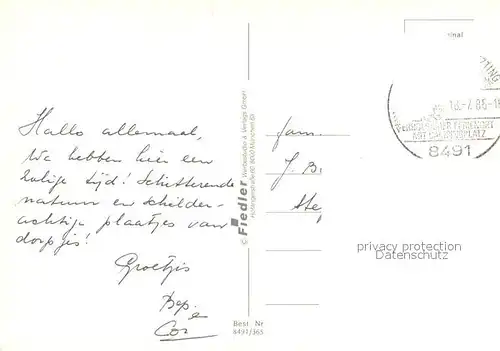 Hallo allemaal,
We hebben hier een
zalige tijd! Schitterende
natuur en schilder-
achtige plaatjes van
dorpjes!
Groetjes
Bep
Cor
© Fiedler
Best. Nr
8491/365
Fam.
J. B.
Ste
inal
TING
18.-7.85-1
8491
privacy protection
Datenschutz